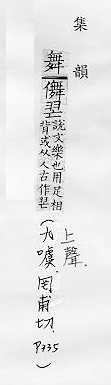 集韻
舞儛𦏶
說文樂也用足相
背或从人古作𦏶
上聲.
(九噳.罔甫切.P335)